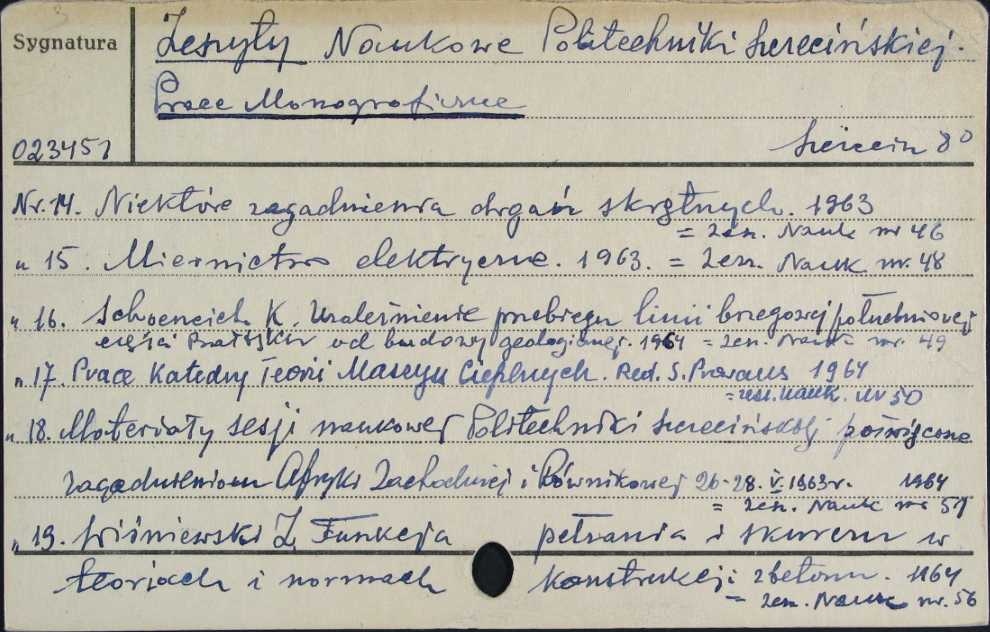 Sygnatura
Zeszyty Naukowe Politechniki Szczecińskiej.
Prace Monograficzne
023451
Szczecin 8°
Nr. 14. Niektóre zagadnienia drgań skrętnych. 1963
= Zesz. Nauk nr 46
" 15. Miernictwo elektryczne. 1963. = Zesz. Nauk. nr. 48
" 16. Schoeneich K. Uzależnienie przebiegu linii brzegowej południowej
części Bałtyku od budowy geologicznej. 1964 = Zesz. Nauk nr. 49
" 17. Prace Katedry Teorii Maszyn Cieplnych. Red. S. Prowans 1964
= zesz. nauk. Nr 50
" 18. Materiały sesji naukowej Politechniki Szczecińskiej poświęcone
zagadnieniom Afryki Zachodniej i Równikowej 26-28. V. 1963 r. 1964
= Zesz. Nauk nr 51
" 19. Wiśniewski Z. Funkcja pełzania i skurczu w
teoriach i normach konstrukcji z betonu. 1964
= Zesz. Nauk nr. 56